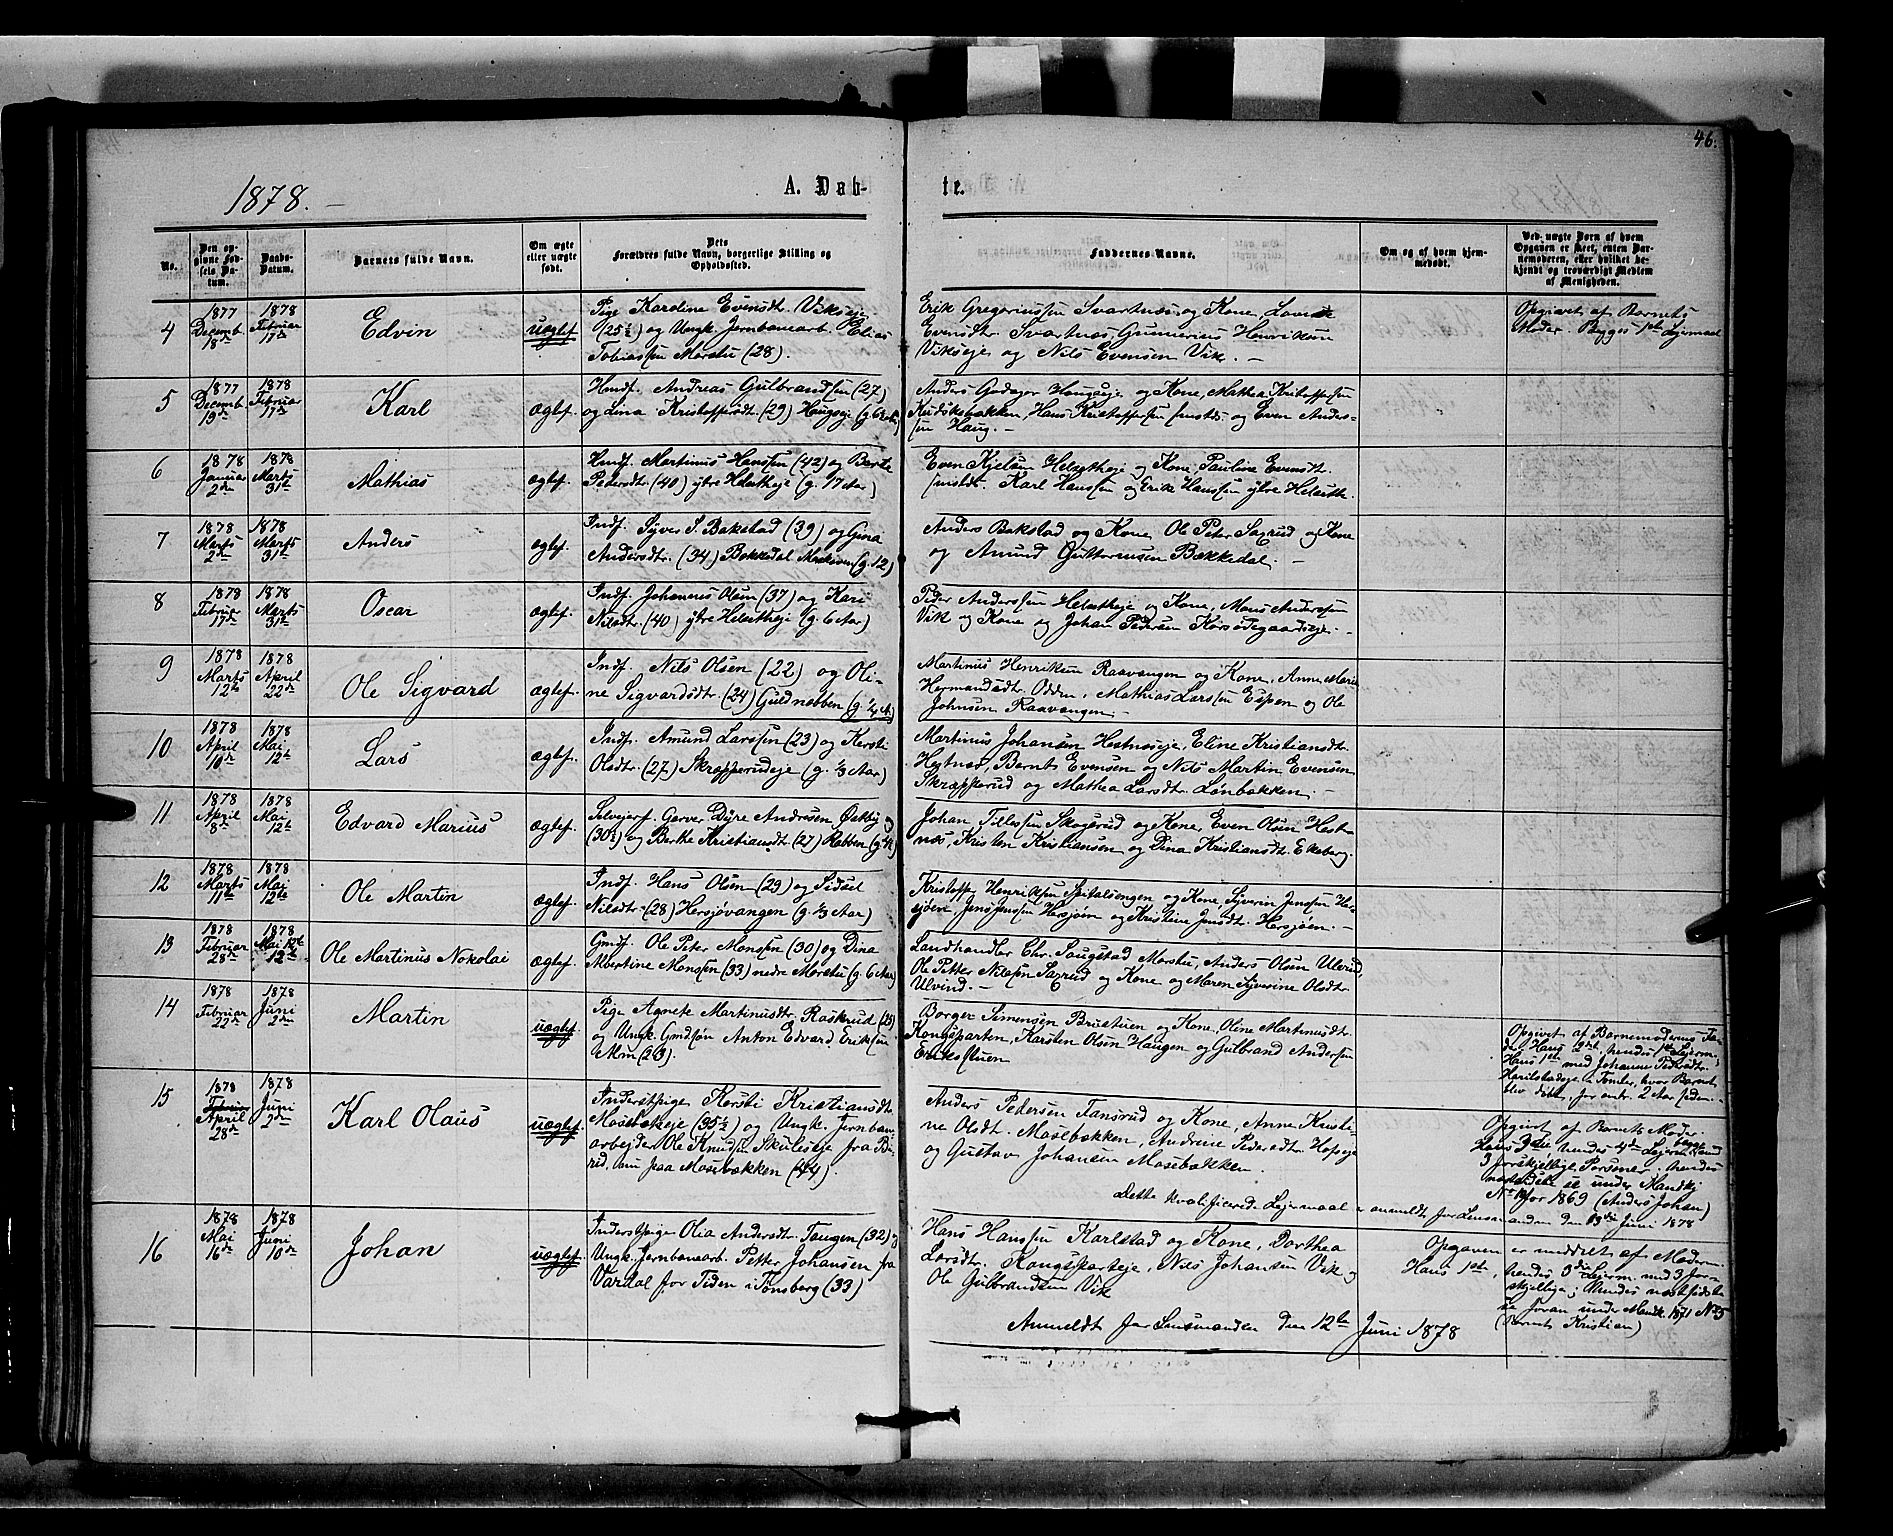 46.
1878.
A. Døb-
te.
No.
Den op-
givne Fød-
sels Da-
tum.
Daabs-
Datum.
Barnets fulde Navn.
Om ægte
eller uægte
født.
Dets
Forældres fulde Navn, borgerlige Stilling og
Opholdssted.
Faddernes Navne.
Om og af hvem hjem-
medøbt.
Ved uægte Børn af hvem
Opgaven er skeet, enten Bar-
nemoderen, eller hvilket be-
kjendt og troværdigt Medlem
af Menigheden.
4
1877
Decemb.
18de
1878
Februar
17de
Edvin
uægtef.
Pige Karoline Evensdt. Vikseje
(25½) og Ungk. Jernbanearb. Elias
Tobiassen Morstu (28).
Erik Gregoriussen Svartnæs og Kone, Lovise
Evensdtr. Svartnæs Gunnerius Henriksen
Vikseje og Nils Evensen Vik. —
Opgivet af Barnets
Moder. Begges 1ste Lejermaal
5
1877
Decemb.
19de
1878
Februar
17de
Karl
ægtef.
Hmdf. Andreas Gulbrandsen (27)
og Lina Kristoffersdt. (29) Haugseje
Anders Haugseje og Kone, Mathea Kristoffersen
Hans Kristoffersen og Even Anders-
sen Haug. —
6
1878
Januar
2de
1878
Marts
31te
Mathias
ægtef.
Hmdf. Martinus Hanssen (42) og Berte
Pedersdt. (40) ytre Helsetheje (g. 17 Aar)
Even Kjelsen Helsetheje og Kone, Pauline Evensdt.
Karl Hanssen og Erik Hanssen ytre Helseth.
7
1878
Marts
2de
1878
Marts
31te
Anders
ægtef.
Indf. Syver S. Bakstad (39) og Gina
Andersdt. (34) Bækkedal (g. 12)
Anders Bakstad og Kone Ole Peter Sagrud og Kone
og Amund Guttormsen Bækkedal. —
8
1878
Februar
17de
1878
Marts
31te
Oscar
ægtef.
Indf. Johannes Olsen (37) og Kari
Nilsdt. (40) ytre Helsetheje (g. 6 Aar)
Peder Anderssen Helsetheje og Kone, Mons Anderssen
Vik og Kone og Johan Pedersen Korsødegaardseje. —
9
1878
Marts
12te
1878
April
22de
Ole Sigvard
ægtef.
Indf. Nils Olsen (22) og Oli-
ne Sigvardsdt. (24) Guldnæbben (g. ¼ A)
Martinus Henriksen Raavangen og Kone, Anne Marie
Hermandsdt. Odden, Mathias Larssen Espen og Ole
Johnsen Raavangen —
10
1878
April
10de
1878
Mai
12te
Lars
ægtef.
Indf. Amund Larssen (23) og Kersti
Olsdtr. (27) Skræpperudeje (g. ⅓ Aar)
Martinus Johansen Hestnæseje, Eline Kristiansdt.
Hestnæs, Bernt Evensen og Nils Martin Evensen
Skræpperud og Mathea Larsdt. Lønbakken. —
11
1878
April
8de
1878
Mai
12te
Edvard Marius
ægtef.
Selvejerf. Garver Dyre Andresen Østby
(30½) og Berthe Kristiansdt. (21) Rabben
Johan Tillessen Skogsrud og Kone, Even Olsen Hest-
næs, Kristen Kristiansen og Dina Kristiansdt. Ekeberg.
12
1878
Marts
11te
1878
Mai
12te
Ole Martin
ægtef.
Indf. Hans Olsen (29) og Sidsel
Nilsdt. (28) Hersjøvangen (g. ⅓ Aar)
Kristoffer Henriksen Spitalsengen og Kone, Syverin Jenssen Her-
sjøen, Jens Jenssen Hersjøen og Kristine Jensdt. Hersjøen. —
13
1878
Februar
28de
1878
Mai
12te
Ole Martinus Nokolai
ægtef.
Gmdf. Ole Peter Monssen (30) og Dina
Albertine Monssen (33) nedre Morstu (g. 6 Aar)
Landhandler Chr. Saugstad Morstu, Anders Olsen Ulvind,
Ole Petter Nilssen Sagrud og Kone og Maren Syverine Olsdt.
Ulvind. —
14
1878
Februar
22de
1878
Juni
2den
Martin
uægtef.
Pige Agnete Martinusdt. Raskrud (23)
og Ungk. Gmdsøn Anton Edvard Eriksen
Alm (23).
Borger Simensen Brustuen og Kone, Oline Martinusdt.
Kongsparten, Karsten Olsen Haugen og Gulbrand Andersen
Eriksstuen
Opgivet af Barnemoderens Fa-
der. Hans 2det, hendes 1ste Lejerm.
Hans 1ste med Johanne Pedersdt.
Tomler, hvor Barnet
blev døbt, for omtr. 2 Aar siden.
15
1878
Februar
April
28de
1878
Juni
2den
Karl Olaus
uægtef.
Inderstpige Kersti Kristiansdt.
Mosebækeje (35½) og Ungk. Jernban-
arbejder Ole Knudsen Skuleseje fra Bi-
rid, nu paa Mosebækken (44)
Anders Pedersen Fansrud og Kone, Anne Kristi-
ne Olsdt. Mosebækken, Andrine Pedersdtr. Hofseje
og Gustav Johansen Mosebækken.
Opgivet af Barnets Moder.
Hans 3die, hendes 4de Lejermaal, begge med
3 forskjellige Personer. hendes
næstsidste se under Mandkj
No 19 for 1869 (Anders Johan)
Dette kvalificerede Lejermaal er anmeldt for Lensmanden den 13de Juni 1878
16
1878
Mai
16de
1878
Juni
10de
Johan
uægtef.
Inderstpige Olia Andersdt. Taugen (32) og
Ungk. Jernbanearb. Petter Johansen fra
Vardal for Tiden i Tønsberg (33)
Hans Hanssen Karlstad og Kone, Dorthea
Larsdt. Kongsparteje, Nils Johansen Vik og
Ole Gulbrandsen Vik
Opgaven er meddelt af Moderen.
Hans 1ste, hendes 3die Lejerm. med 3 for-
skjellige; Hendes næstsidste
se foran under Mandk. 1871 No 5
(Barnets Kristian)
Anmeldt for Lensmanden den 12te Juni 1878